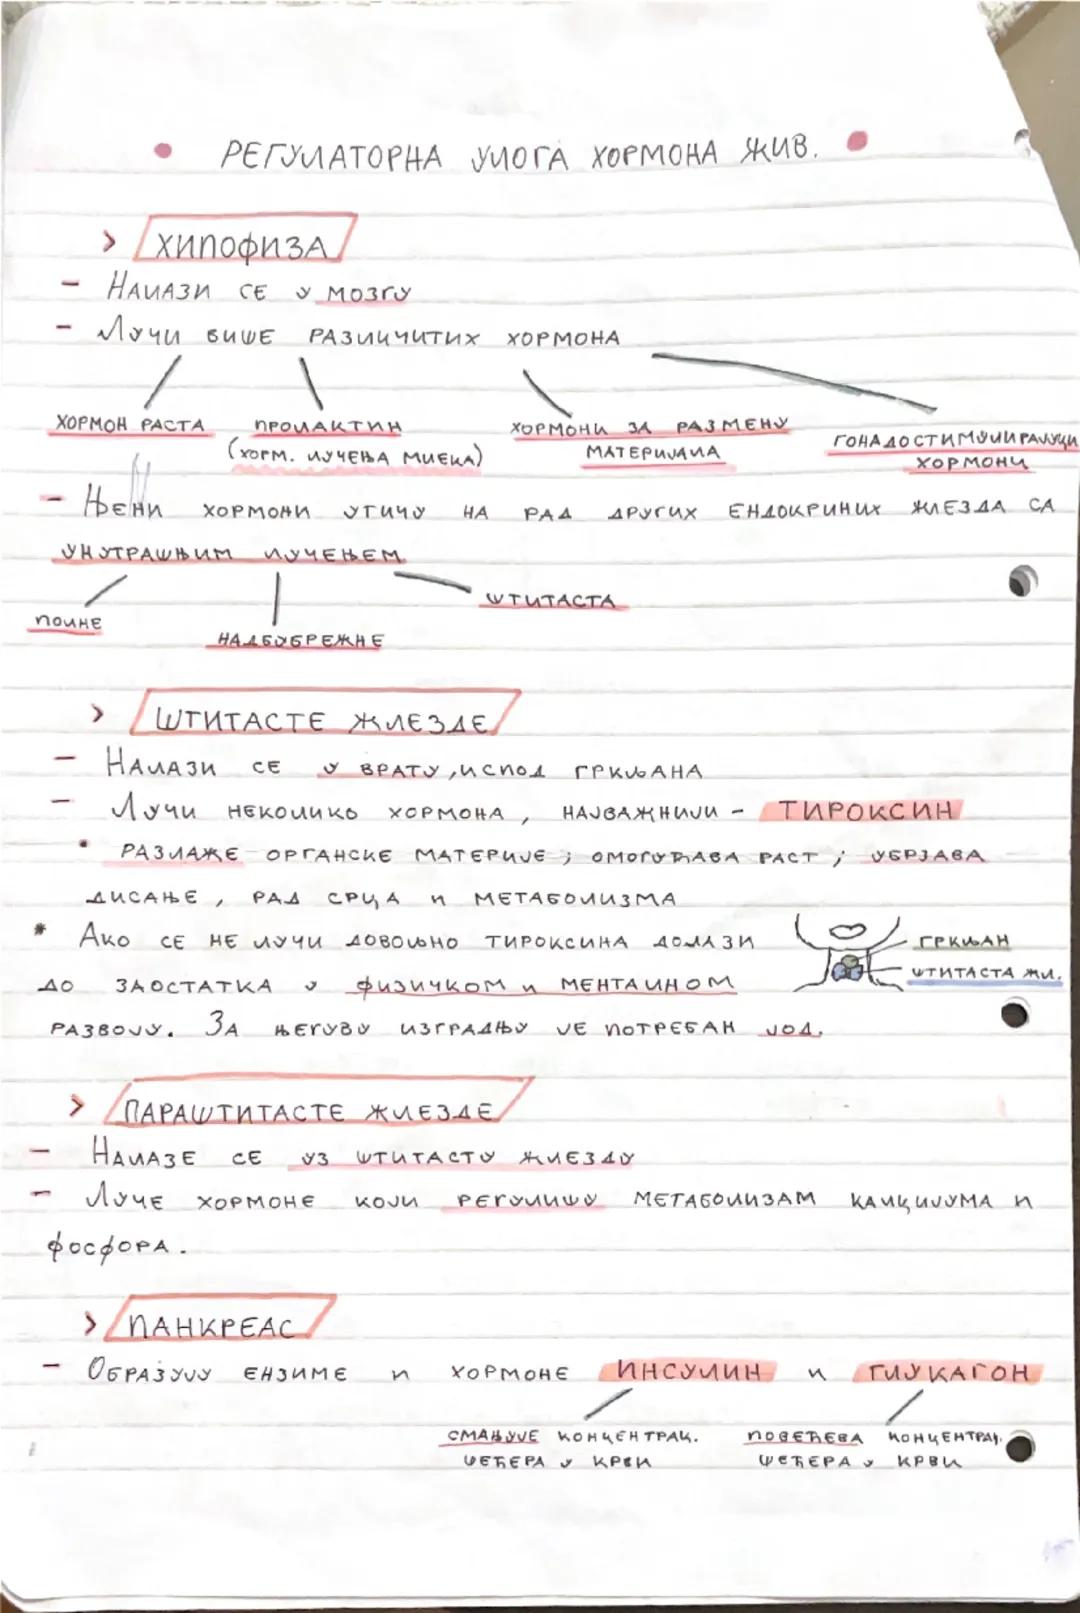 РЕГУЛАТОРНА УЛОГА ХОРМОНА ЖИВ.
> ХИПОФИЗА
- НАЛАЗИ СЕ У МОЗГУ
- ЛУЧИ ВИШЕ РАЗЛИЧИТИХ ХОРМОНА
ХОРМОН РАСТА ПРОЛАКТИН ХОРМОНИ ЗА РАЗМЕНУ ГОНАДОСТИМУЛИРАЈУЋИ
(ХОРМ. ЛУЧЕЊА МЛЕКА) МАТЕРИЈАЛА ХОРМОНИ
- ЊЕНИ ХОРМОНИ УТИЧУ НА РАД ДРУГИХ ЕНДОКРИНИХ ЖЛЕЗДА СА
УНУТРАШЊИМ ЛУЧЕЊЕМ
ПОЛНЕ НАДБУБРЕЖНЕ ШТИТАСТА
> ШТИТАСТЕ ЖЛЕЗДЕ
- НАЛАЗИ СЕ У ВРАТУ, ИСПОД ГРКЉАНА
- ЛУЧИ НЕКОЛИКО ХОРМОНА, НАЈВАЖНИЈИ - ТИРОКСИН
• РАЗЛАЖЕ ОРГАНСКЕ МАТЕРИЈЕ; ОМОГУЋАВА РАСТ; УБРЗАВА
ДИСАЊЕ, РАД СРЦА И МЕТАБОЛИЗМА
* АКО СЕ НЕ ЛУЧИ ДОВОЉНО ТИРОКСИНА ДОЛАЗИ
ДО ЗАОСТАТКА У ФИЗИЧКОМ И МЕНТАЛНОМ
РАЗВОЈУ. ЗА ЊЕГУВУ ИЗГРАДЊУ ЈЕ ПОТРЕБАН ЈОД.
ГРКЉАН
ШТИТАСТА ЖЛ.
> ПАРАШТИТАСТЕ ЖЛЕЗДЕ
- НАЛАЗЕ СЕ УЗ ШТИТАСТУ ЖЛЕЗДУ
- ЛУЧЕ ХОРМОНЕ КОЈИ РЕГУЛИШУ МЕТАБОЛИЗАМ КАЛЦИЈУМА И
ФОСФОРА.
> ПАНКРЕАС
- ОБРАЗУЈУ ЕНЗИМЕ И ХОРМОНЕ ИНСУЛИН И ГЛУКАГОН
СМАЊУЈЕ КОНЦЕНТРАЦ. ПОВЕЋЕВА КОНЦЕНТРАЦ.
ШЕЋЕРА У КРВИ ШЕЋЕРА У КРВИ